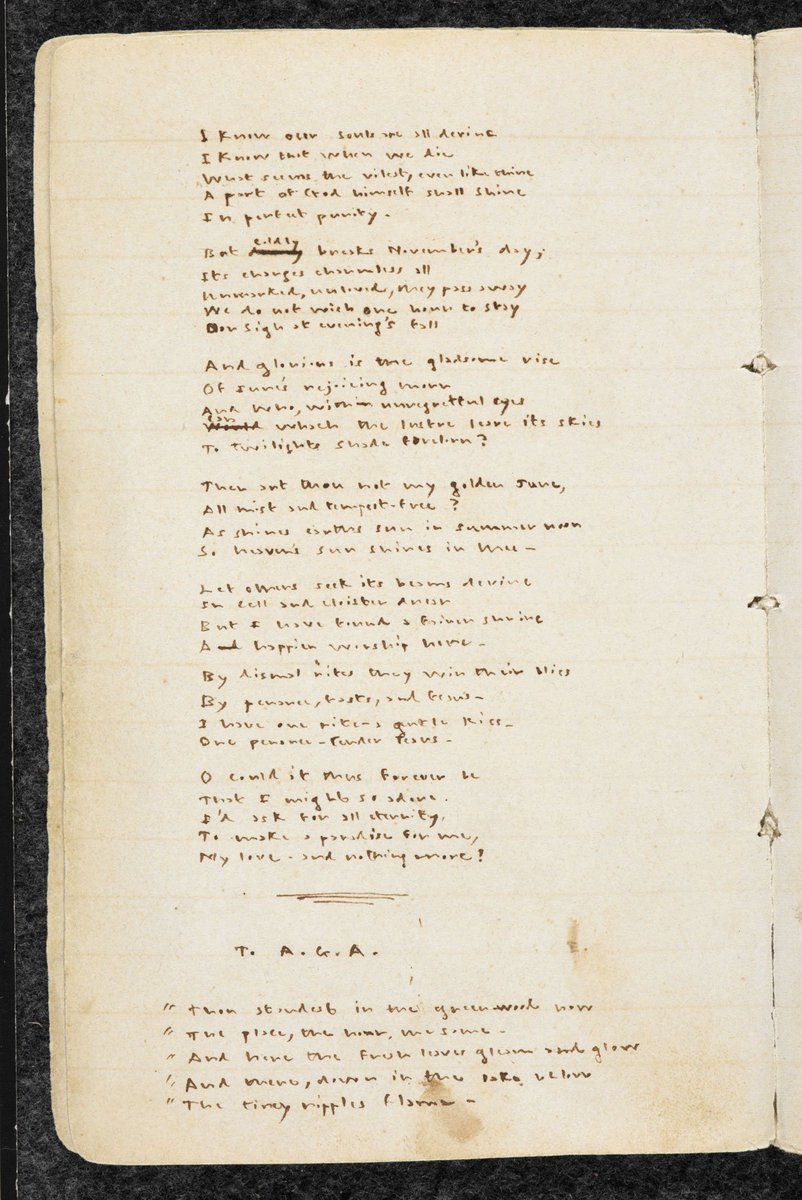 I know our souls are all devine
I know that when we die
What seems the vilest, even like thine
A part of God himself shall shine
In perfect purity.
coldly
But breaks November's day;
Its changes charmless all
Unmarked, unloved, they pass away
We do not wish one hour to stay
Nor sigh at evening's fall
And glorious is the gladsome rise
Of June's rejoicing morn
And who, with unregretful eyes
can
Would watch the lustre leave its skies
To twilights shade forelorn?
Then art thou not my golden June,
All mist and tempest-free?
As shines earths sun in summer noon
So heaven's sun shines in thee —
Let others seek its beams devine
In cell and cloister drear
But I have found a fairer shrine
And happier worship here —
By dismal rites they win their bliss
By penance, fasts, and fears —
I have one rite — a gentle kiss —
One penance — tender tears —
O could it thus forever be
That I might so adore.
I'd ask for all eternity,
To make a paradise for me,
My love — and nothing more?
To A.G.A.
" Thou standest in the greenwood now
" The place, the hour, the same —
" And here the fresh leaves gleam and glow
" And there, down in the lake below
" The tiney ripples flame —